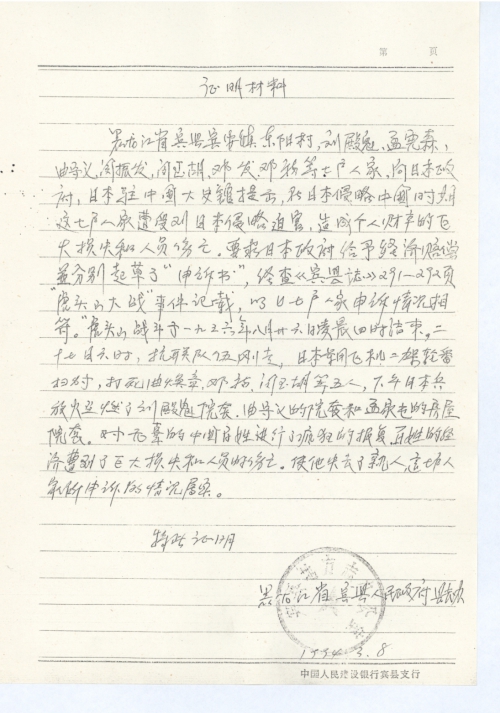 第 页
证明材料
黑龙江省宾县宾安镇东阳村,刘殿魁、孟宪森、
曲导义、闫振发、
府,日本驻中国大史馆提示,在日本侵略中国时期
这七户人家遭受到日本侵略迫害,造成个人财产的巨
大损失和人员伤亡。要求日本政府给予经济赔偿
并分别起草了“申诉书”,经查《宾县誌》291-292页
“虎头山大战”事件记载,以七户人家申诉情况相
符。“虎头山战斗于一九三六年八月廿六日凌晨四时结束。二
十七日六时,抗联队伍刚走,日本军用飞机二架轮番
扫射,打死 等五人,下午日本兵
放火烧了刘殿魁院套、曲导义的院套和 的房屋
院套。对无辜的中国百姓进行了疯狂的报复 百姓的经
济遭到了巨大损失和人员的伤亡。使他失去了亲人,
家所申诉的情况属实。
特此证明
黑龙江省宾县人民政府
1994.3.8
中国人民建设银行宾县支行